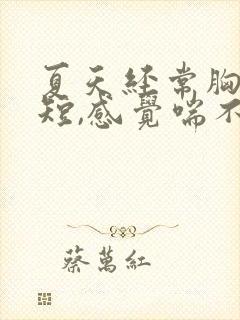 夏天經常胸
短,感覺喘不
蔡萬紅